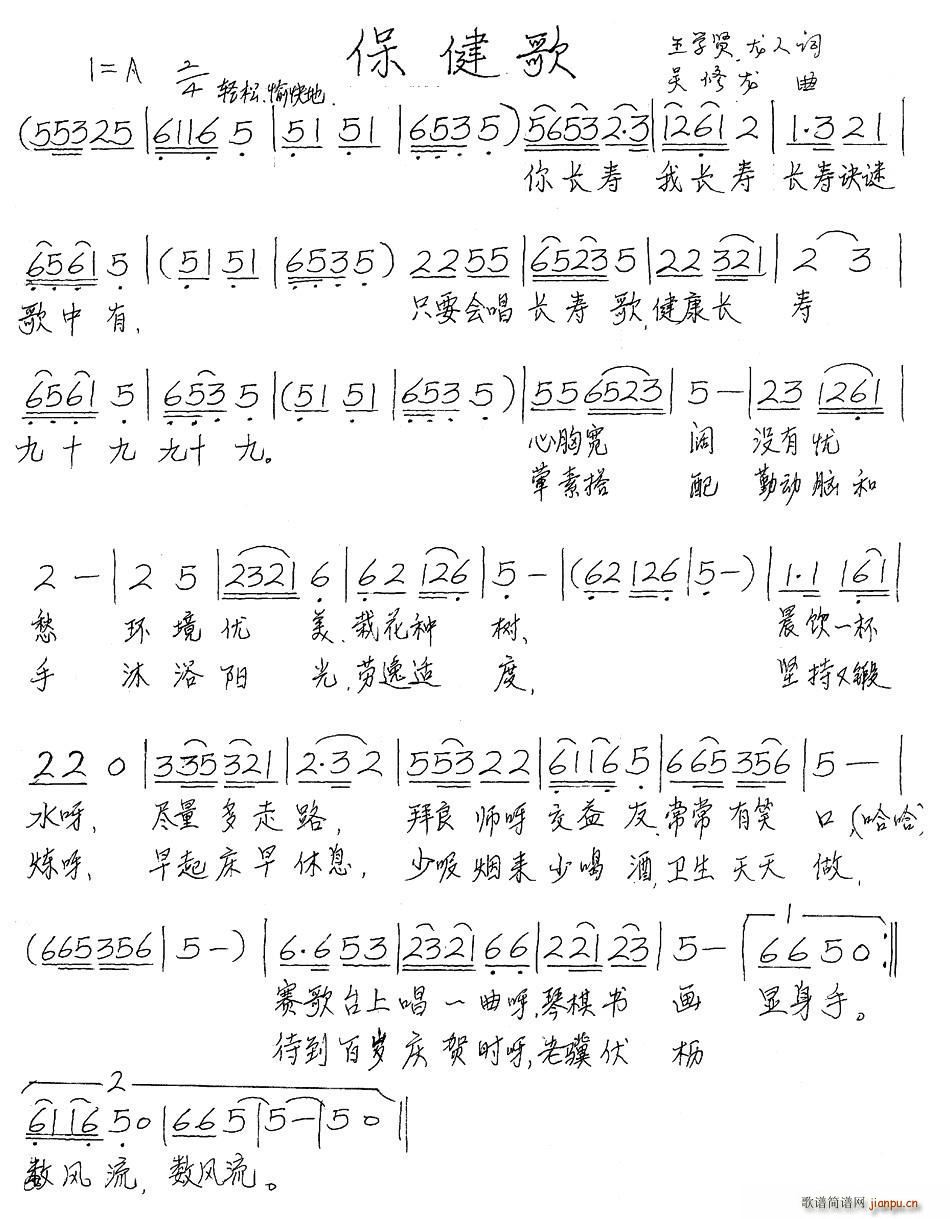 保健歌
王学贤、龙人词
1=A 2/4 轻松、愉快地
吴修龙 曲
(553325|6116 5|51 51|6535)565532·3|1261 2|1·3 21|
你长寿 我长寿 长寿诀谜
6561 5|(51 51|6535) 2255|65235|22 321|2 3
歌中有, 只要会唱长寿歌,健康长 寿
6561 5|653 5|(51 51|653 5)|55 6523|5 -|23 1261|
九十九 九十九。 心胸宽 阔 没有忧
荤素搭 配 勤动脑和
2 -|2 5|2321 6|62 126|5 -|(62 126|5 -)|1·1 161|
愁 环境优 美、栽花种 树、 晨饮一杯
手 沐浴阳 光,劳逸适 度, 坚持又锻
22 0|335 321|2·3 2|553 22|6116 5|665 356|5 -|
水呀, 尽量多走路, 拜良师呀交益友,常常有笑 口(哈哈),
炼呀、 早起床早休息, 少吸烟来少喝酒,卫生天天做,
(665356|5 -)|6·6 53|23·21 66|221 23|5 -|1 66 50:||
赛歌台上唱一曲呀,琴棋书 画 显身手。
待到百岁庆贺时呀,老骥伏 枥
2
6116 50|66 5|5 -|5 0||
数风流, 数风流。
歌谱简谱网 jianpu.cn